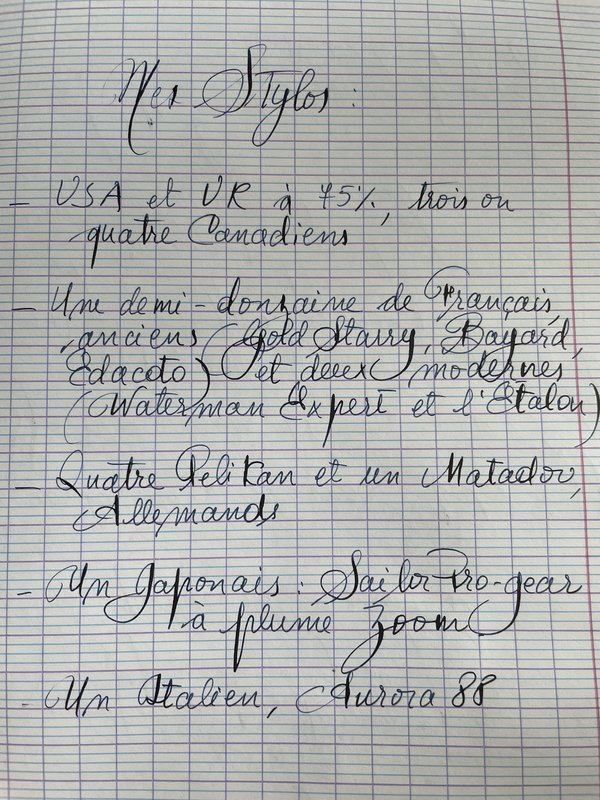 Mes Stylos :
- USA et UK à 75%, trois ou
quatre Canadiens
- Une demi-douzaine de Français,
anciens (Gold Starry, Bayard,
Edacoto) et deux modernes
(Waterman Expert et l'Etalon)
- Quatre Pelikan et un Matador,
Allemands
- Un Japonais : Sailor Pro-gear
à plume Zoom
- Un Italien, Aurora 88